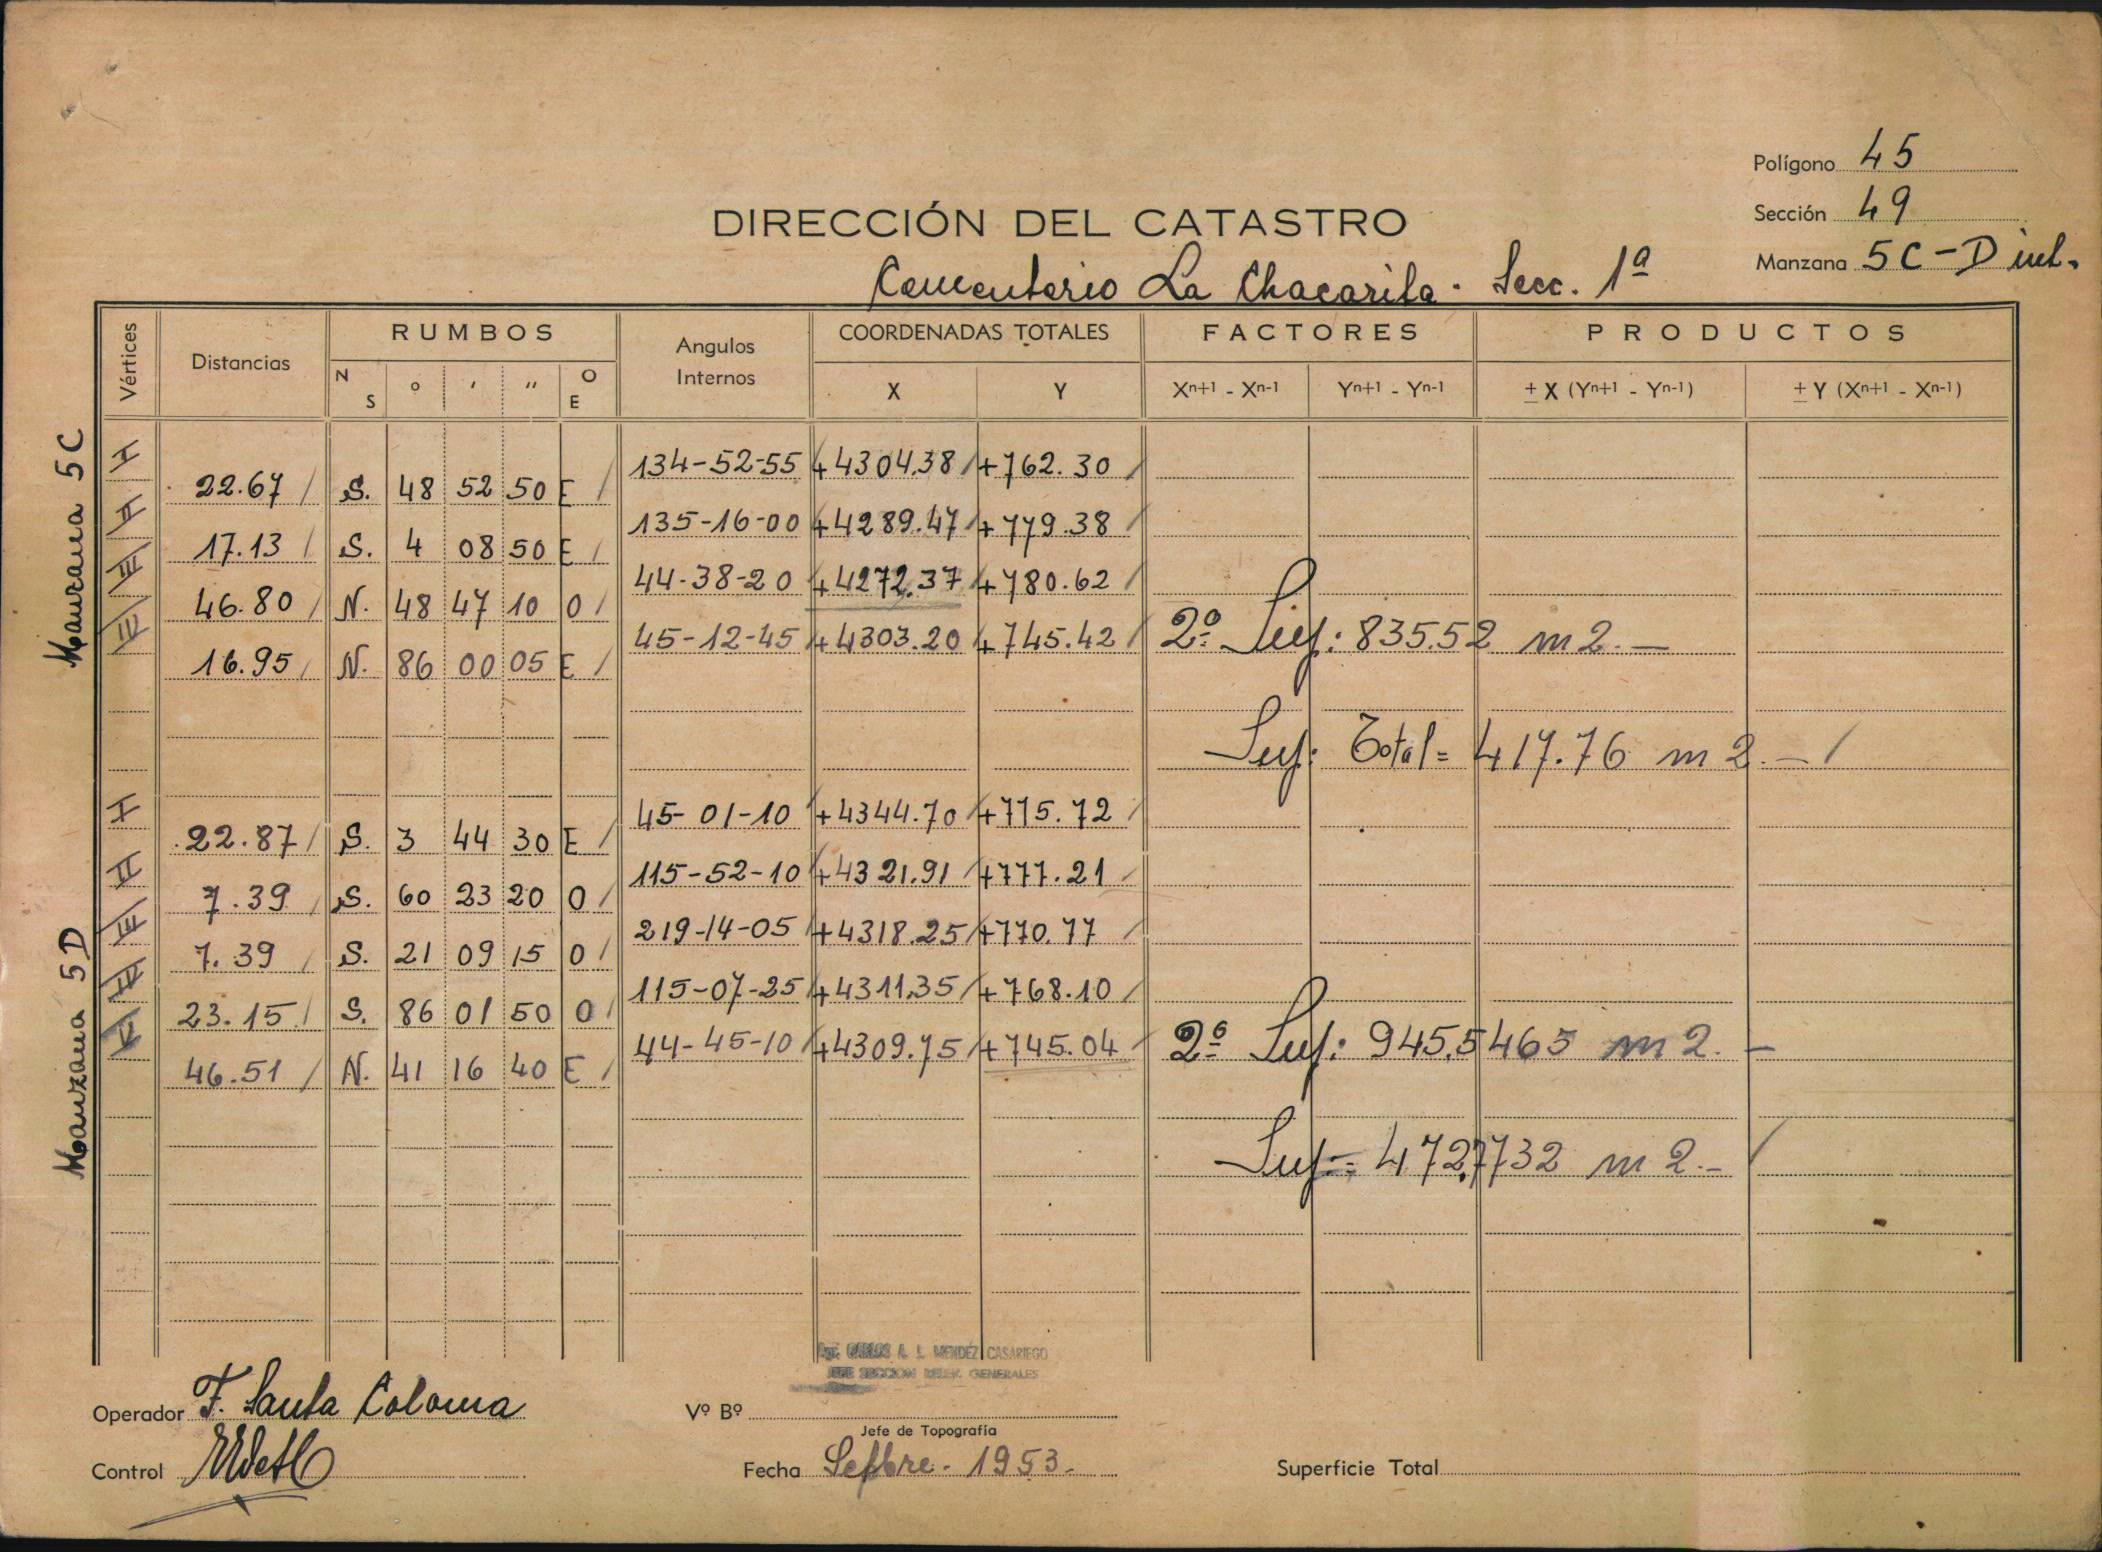 Polígono 45
Sección 49
DIRECCIÓN DEL CATASTRO
Manzana 5C-D int.
Cementerio La Chacarita. Secc. 1ª
Vértices Distancias RUMBOS Angulos Internos COORDENADAS TOTALES FACTORES PRODUCTOS
N S ° ' " O E X Y Xn+1 - Xn-1 Yn+1 - Yn-1 ± X (Yn+1 - Yn-1) ± Y (Xn+1 - Xn-1)
Manzana 5C
I 134-52-55 +4304.38 +762.30
22.67 S. 48 52 50 E
II 135-16-00 +4289.47 +779.38
17.13 S. 4 08 50 E
III 44-38-20 +4272.37 +780.62
46.80 N. 48 47 10 O
IV 45-12-45 +4303.20 +745.42 2º Sup: 835.52 m2.—
16.95 N. 86 00 05 E
Sup: Total= 417.76 m2.—
Manzana 5D
I 45-01-10 +4344.70 +775.72
22.87 S. 3 44 30 E
II 115-52-10 +4321.91 +777.21
7.39 S. 60 23 20 O
III 219-14-05 +4318.25 +770.77
7.39 S. 21 09 15 O
IV 115-07-25 +4311.35 +768.10
23.15 S. 86 01 50 O
V 44-45-10 +4309.75 +745.04 2º Sup: 945.5465 m2.—
46.51 N. 41 16 40 E
Sup= 472.7732 m2.—
CARLOS A. L. MENDEZ CASARIEGO
JEFE SECCION RELEV. GENERALES
Operador F. Santa Coloma
Vº Bº
Jefe de Topografía
Control
Fecha Sepbre. 1953.
Superficie Total